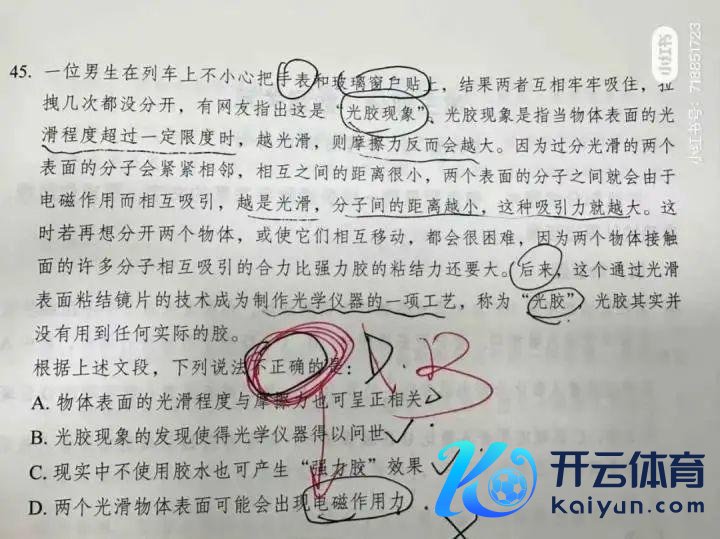 45. 一位男生在列车上不小心把手表和玻璃窗户贴上，结果两者互相牢牢吸住，拉
拽几次都没分开，有网友指出这是“光胶现象”。光胶现象是指当物体表面的光
滑程度超过一定限度时，越光滑，则摩擦力反而会越大。因为过分光滑的两个
表面的分子会紧紧相邻，相互之间的距离很小，两个表面的分子之间就会由于
电磁作用而相互吸引，越是光滑，分子间的距离越小，这种吸引力就越大。这
时若再想分开两个物体，或使它们相互移动，都会很困难，因为两个物体接触
面的许多分子相互吸引的合力比强力胶的粘结力还要大。后来，这个通过光滑
表面粘结镜片的技术成为制作光学仪器的一项工艺，称为“光胶”，光胶其实并
没有用到任何实际的胶。
根据上述文段，下列说法不正确的是：D. B
A. 物体表面的光滑程度与摩擦力也可呈正相关
B. 光胶现象的发现使得光学仪器得以问世
C. 现实中不使用胶水也可产生“强力胶”效果
D. 两个光滑物体表面可能会出现电磁作用力
小红书
小红书号：718851723
开云体育
kaiyun.com